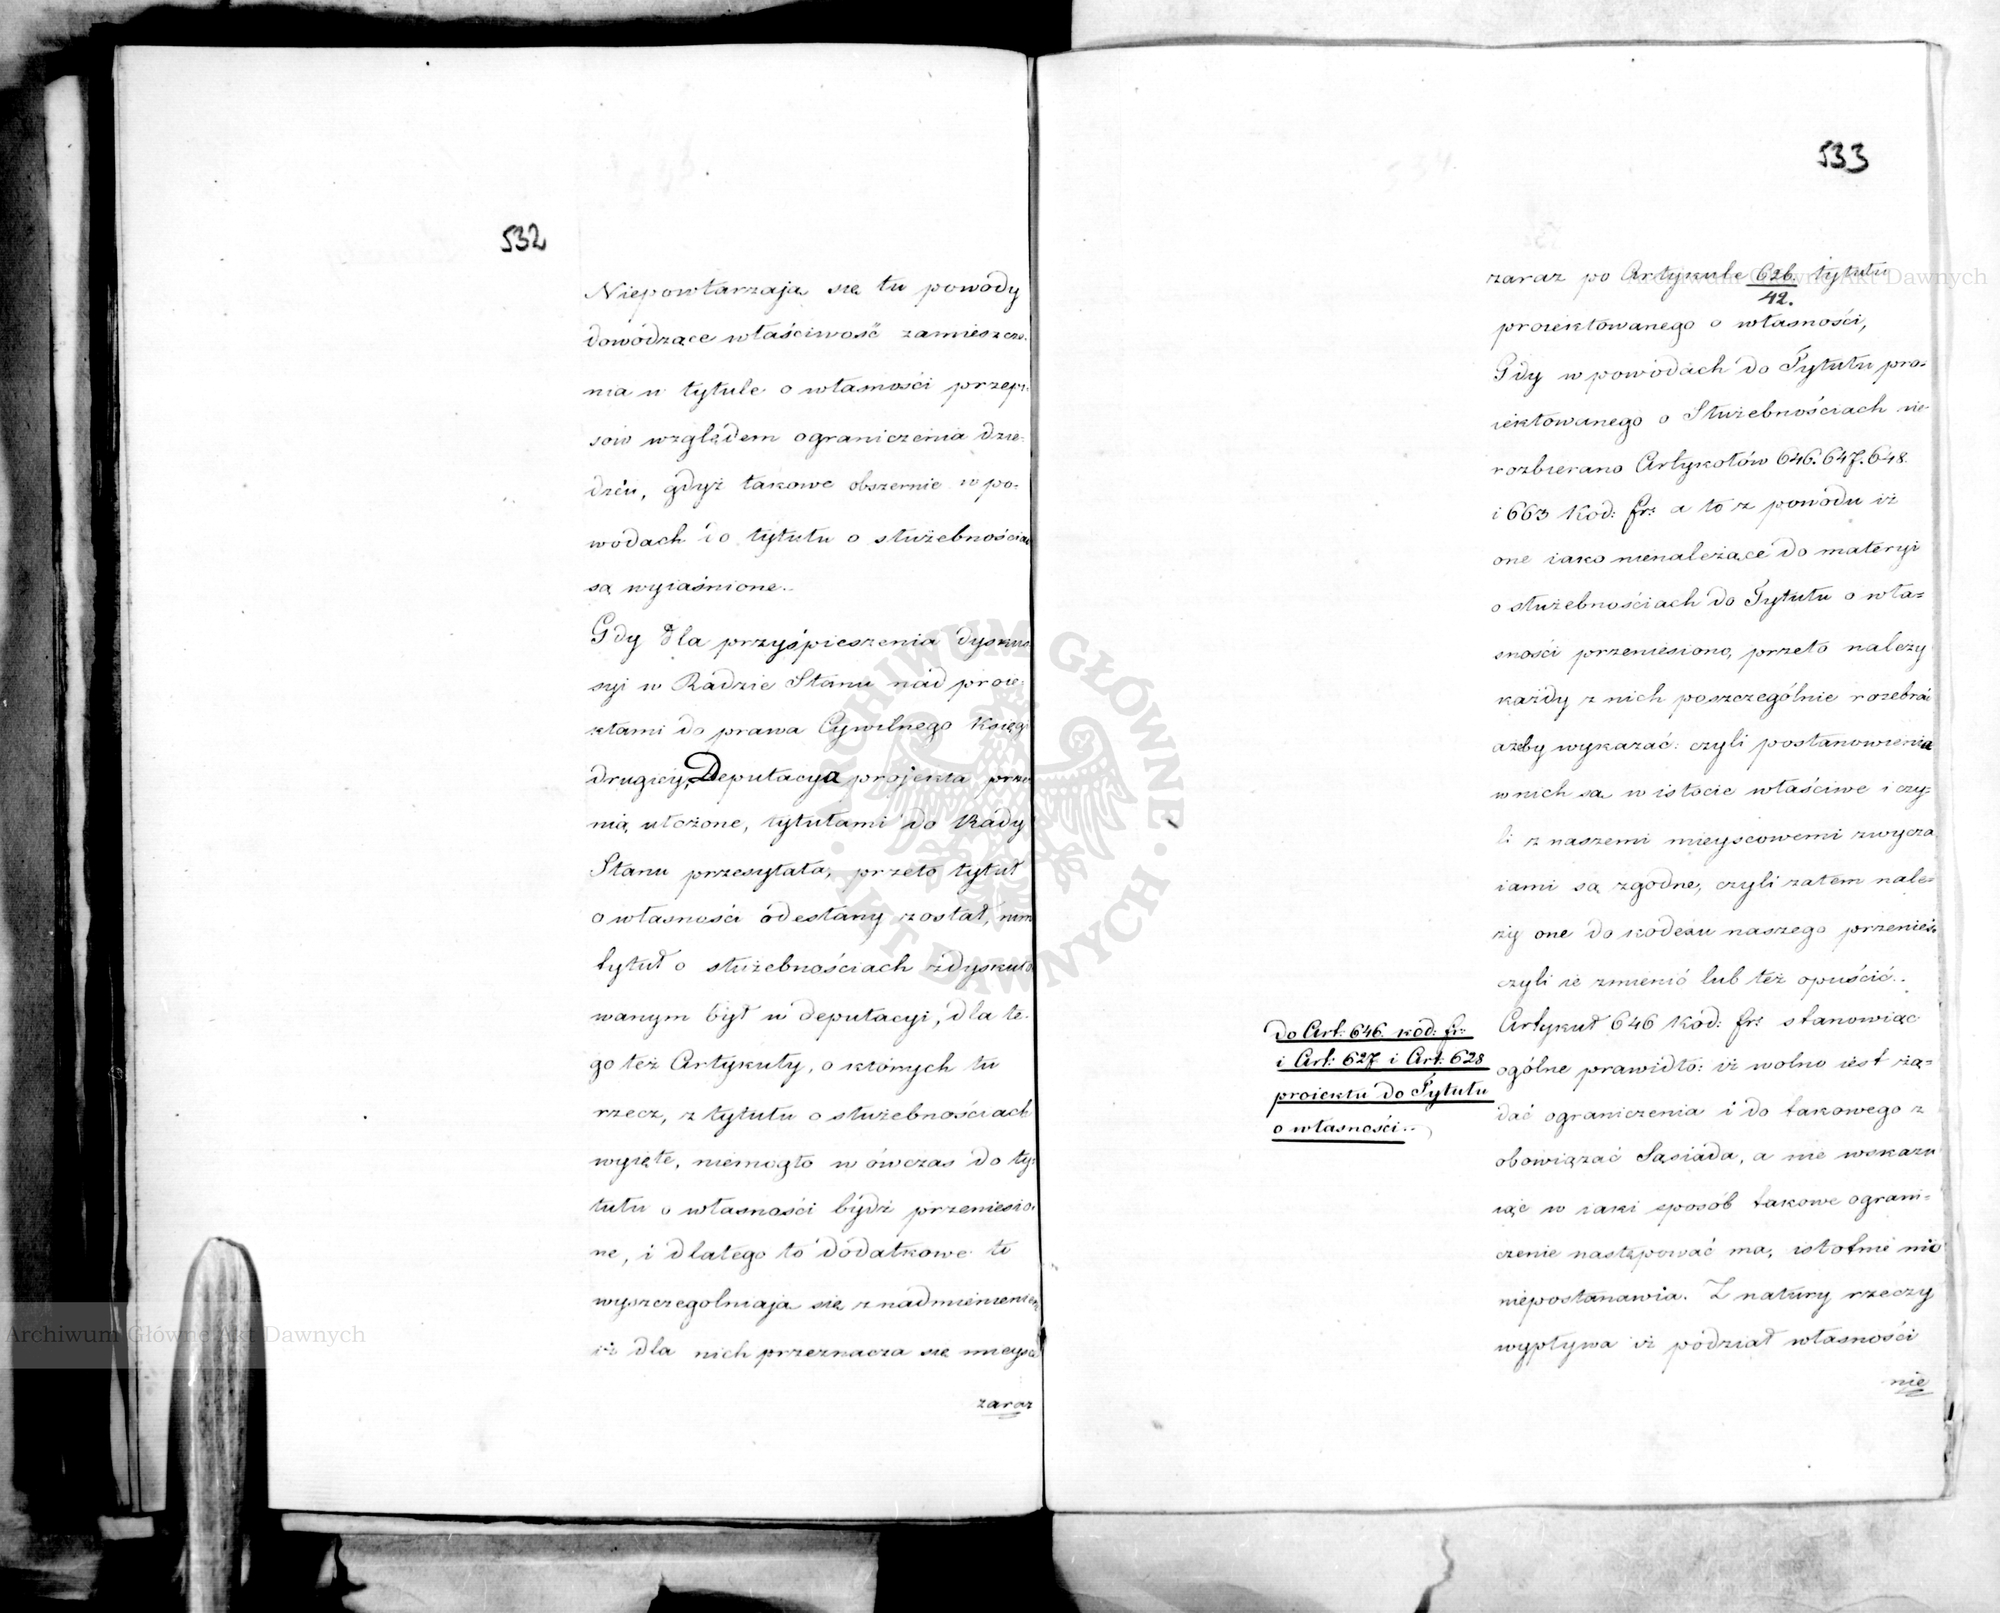 532
Niepowtarzają się tu powody
dowodzące właściwość zamieszcze-
nia w tytule o własności przepi-
sów względem ograniczenia dzie-
dzin, gdyż takowe obszernie w po-
wodach do tytułu o służebnościach
są wyiaśnione.
Gdy dla przyśpieszenia dysku-
syi w Radzie Stanu nad proie-
ktami do prawa Cywilnego Księgi
drugiey, Deputacya projekta prze
nią ułożone, tytułami do Rady
Stanu przesyłała, przeto tytuł
o własności odesłany został, nim
tytuł o służebnościach zdyskuto
wanym był w deputacyi, dla te-
go też Artykuły, o których tu
rzecz, z tytułu o służebnościach
wyięte, niemogło w ówczas do ty-
tułu o własności bydź przeniesio-
ne, i dlatego to dodatkowe tu
wyszczegolniaja się z nadmienieniem
iż dla nich przeznacza się mieysce
zaraz
533
zaraz po Artykule 626. tytułu
42.
proiektowanego o własności,
Gdy w powodach do Tytułu pro-
iektowanego o Służebnościach nie
rozbierano Artykułów 646. 647. 648.
i 663 Kod: fr: a to z powodu iż
one iako nienależące do materyi
o służebnościach do Tytułu o wła-
sności przeniesiono, przeto należy
każdy z nich poszczególnie rozebrać
ażeby wykazać: czyli postanowienia
w nich są w istocie właściwe i czy-
li z naszemi mieyscowemi zwycza
iami są zgodne, czyli zatem nale-
ży one do kodexu naszego przenieść
czyli ie zmienić lub też opuścić.
do Art: 646. kod: fr:
i Art: 627 i Art: 628
proiektu do Tytułu
o własności.
Artykuł 646 Kod: fr: stanowiąc
ogólne prawidło: iż wolno iest żą-
dać ograniczenia i do takowego z
obowiązać Sąsiada, a nie wskazu
iąc w iaki sposób takowe ograni-
czenie następować ma, istotnie nic
niepostanawia. Z natury rzeczy
wypływa iż podział własności
nie
Archiwum Główne Akt Dawnych
Archiwum Główne Akt Dawnych
ARCHIWUM GŁÓWNE · AKT DAWNYCH ·